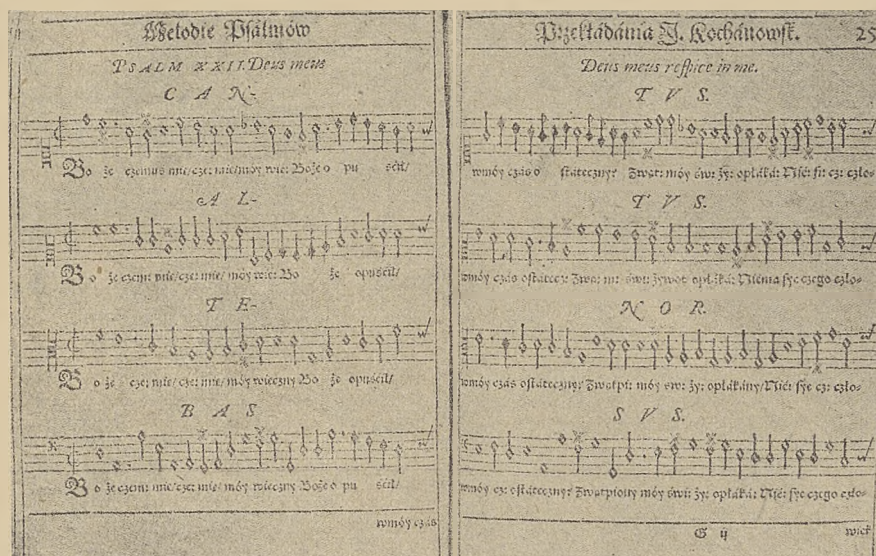 Melodie Psálmów
PSALM XXII. Deus meus
CAN-
Bo że czemuś mie/cze: mie/móy wie: Boże o pu śćił/
AL-
Bo że czem: mie/cze: mie/ móy wie: Bo że opuśćił/
TE-
Bo że cze: mie/ cze: mie/ móy wieczny Bo że opuśćił/
BAS
Bo że czem: mie/cze: mie/ móy wieczny Boże o pu śćił/
wmóy czás
Przekłádánia J. Kochánowsk. 25
Deus meus respice in me.
TVS.
wmóy czás o státeczny? Zwąt: móy świ: ży: opłáká: Nić: si: cz: czło-
TVS.
wmóy czás ostátecz: Zwą: m: świ: żywot opłáká: Nićiem sye czego czło-
NOR.
wmóy czás ostáteczny? Zwątpi: móy sw: ży: opłákány/Nić: sye cz: czło-
SVS.
wmóy cz: ostáteczny? Zwątpiony móy świ: ży: opłáká: Nić: sye czego czło-
G ij
wiek